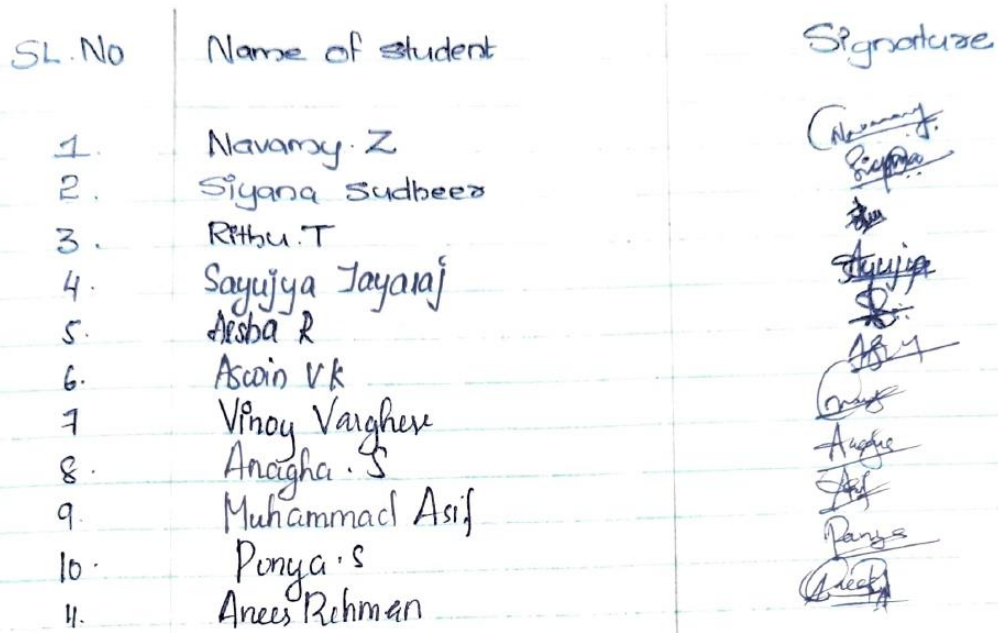 SL. No Name of student Signature
1. Navamy. Z Navamy
2. Siyana Sudheer Siyana
3. Rithu. T
4. Sayujya Jayaraj Ayujya
5. Aesba R
6. Aswin VK
7 Vinoy Varghese
8. Anagha. S Anagha
9. Muhammad Asif Asif
10. Ponya. S
11. Anees Rehman